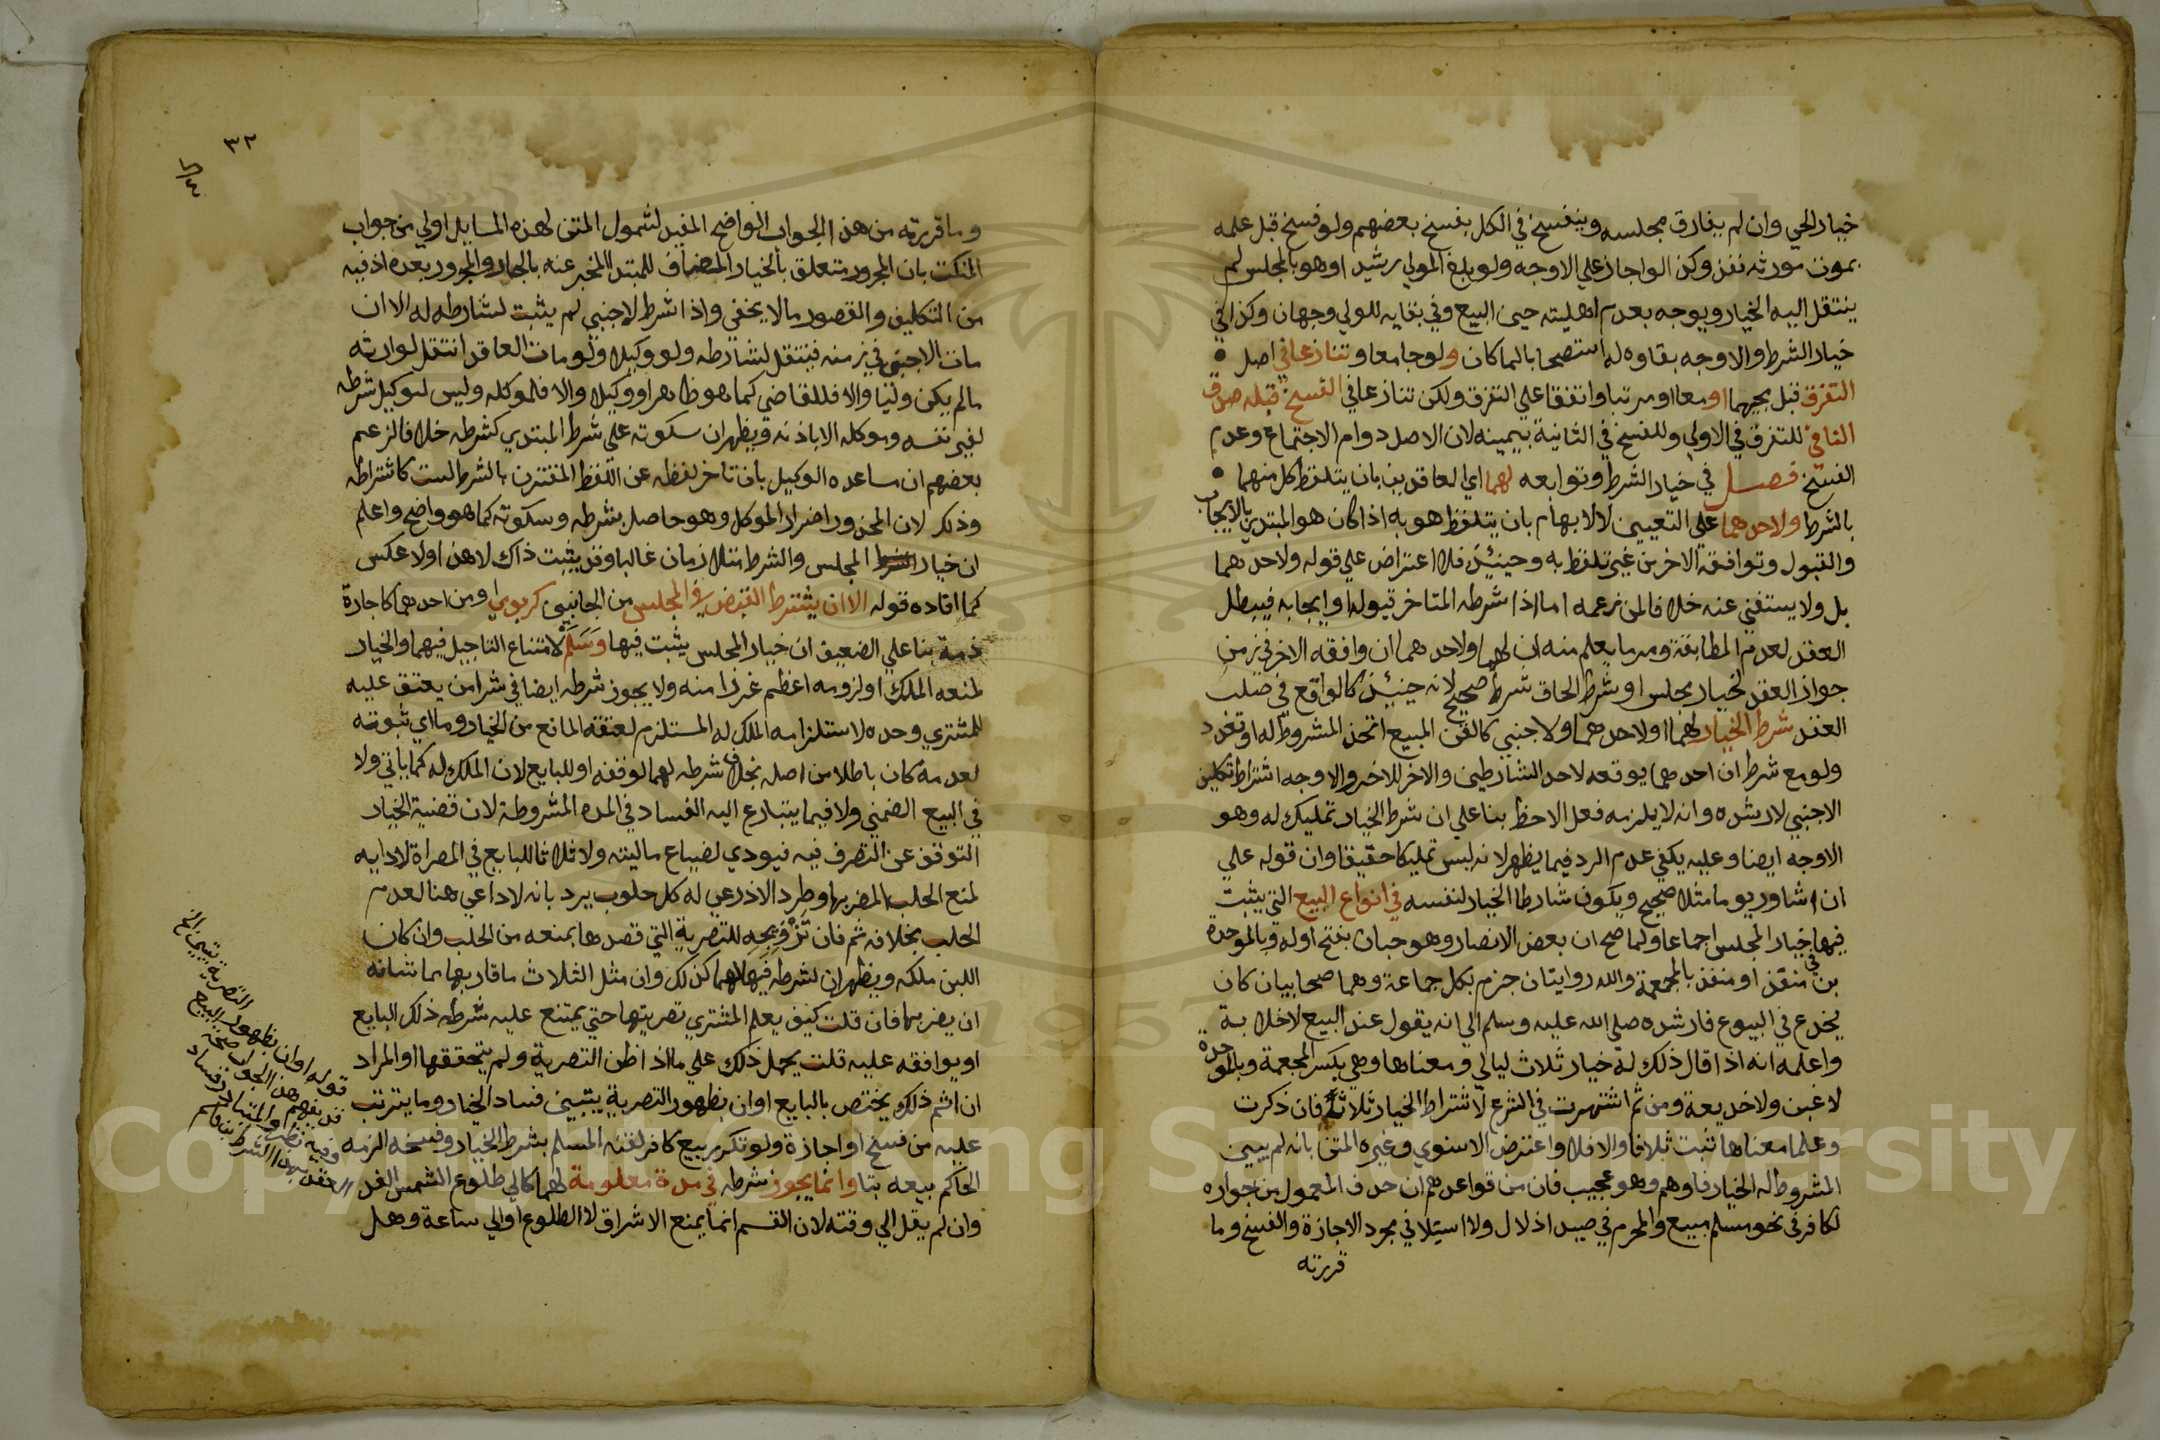 خيار الحي وان لم يفارق مجلسه وينفسخ في الكل بفسخ بعضهم ولو فسخ قبل علمه
بموت مورثه نفذ وكذا لو اجاز علي الاوجه ولو بلغ المولي رشيدا وهو بالمجلس لم
ينتقل اليه الخيار ويوجه بعدم اهليته حين البيع وفي بقايه للولي وجهان وكذا في
خيار الشرط والاوجه بقاوه له استصحابا لما كان ولو جا معا وتنازعا في اصل
التفرق قبل مجيهما او معا او مرتبا واتفقا علي التفرق ولكن تنازعا في الفسخ قبله صدق
النافي للتفرق في الاولي وللفسخ في الثانية بيمينه لان الاصل دوام الاجتماع وعدم
الفسخ فصل في خيار الشرط وتوابعه لهما اي العاقدين بان يتلفظ كل منهما
بالشرط ولاحدهما علي التعيين لا الابهام بان يتلفظ هو به اذا كان هو المبتدي بالايجاب
والقبول وتوافقه الاخر من غير تلفظ به وحينيذ فلا اعتراض علي قوله ولاحدهما
بل ولا يستغني عنه خلافا لمن زعمه اما اذا شرطه المتاخر قبوله او ايجابه فيبطل
العقد لعدم المطابقة ومر ما يعلم منه ان لهما ولاحدهما ان وافقه الاخر في زمن
جواز العقد لخيار مجلس او شرط الحاق شرط صحيح لانه حينيذ كالواقع في صلب
العقد شرط الخيار لهما او لاحدهما ولاجنبي كالقن المبيع اتحد المشروط له او تعدد
ولو مع شرط ان احدهما يوقعه لاحد الشارطين والاخر للاخر والاوجه اشتراط تكليف
الاجنبي لا رشده وانه لا يلزمه فعل الاحظ بنا علي ان شرط الخيار تمليك له وهو
الاوجه ايضا وعليه يكفي عدم الرد فيما يظهر لانه ليس تمليكا حقيقا وان قوله علي
ان اشاور يوما مثلا صحيح ويكون شارطا الخيار لنفسه في انواع البيع التي يثبت
فيها خيار المجلس اجماعا ولما صح ان بعض الانصار وهو حبان بفتح اوله وبالموحدة
بن منقذ او منقذ بالمعجمة والله روايتان جزم بكل جماعة وهما صحابيان كان
يخدع في البيوع فارشده صلي الله عليه وسلم الي انه يقول عند البيع لا خلابة
واعلمه انه اذا قال ذلك له خيار ثلاث ليالي ومعناها وهي بكسر المعجمة وبالموحدة
لا غبن ولا خديعة ومن ثم اشتهرت في الشرع لاشتراط الخيار ثلاثة فان ذكرت
وعلما معناها ثبت ثلاثا والا فلا واعترض الاسنوي وغيره المتن بانه لم يبين
المشروط له الخيار فاوهم وهو عجيب فان من قواعدهم ان حذف المعمول من جوازه
لكافر في نحو مسلم مبيع والمحرم في صيد اذ لا اذلال ولا استيلا في مجرد الاجازة والفسخ وما
قررته
٣٢
وما قررته من هذا الجواب الواضح المفيد لشمول المتن لهذه المسايل اولي من جواب
النكت بان المجرور متعلق بالخيار المضاف للمبتدا المخبر عنه بالجار والمجرور بعده اذ فيه
من التكليف والقصور ما لا يخفي واذا شرط لاجنبي لم يثبت لشارطه له الا ان
مات الاجنبي في زمنه فينتقل لشارطه ولو وكيلا ولو مات العاقد انتقل لوارثه
مالم يكن وليا والا فللقاضي كما هو ظاهر او وكيلا والا فلموكله وليس لوكيل شرطه
لغير نفسه وموكله الا باذنه ويظهر ان سكوته علي شرط المبتدي كشرطه خلافا لزعم
بعضهم ان مساعده الوكيل بان تاخر لفظه عن اللفظ المقترن بالشرط ليست كاشتراطه
وذلك لان المحذور اضرار الموكل وهو حاصل بشرطه وسكوته كما هو واضح واعلم
ان خيار المجلس والشرط متلازمان غالبا وقد يثبت ذاك لا هذا ولا عكس
كما افاده قوله الا ان يشترط القبض في المجلس من الجانبين كربوي او من احدهما كاجارة
ذمة بنا علي الضعيف ان خيار المجلس يثبت فيها وسلم لامتناع التاجيل فيهما والخيار
لمنعه الملك او لزومه اعظم غررا منه ولا يجوز شرطه ايضا في شرا من يعتق عليه
للمشتري وحده لاستلزامه الملك له المستلزم لعتقه المانع من الخيار وما اي ثبوته
لعدمه كان باطلا من اصله بخلاف شرطه لهما لوقفه او للبايع لان الملك له كما ياتي ولا
في البيع الضمني ولا فيما يتبارع اليه الفساد في المده المشروطة لان قضية الخيار
التوقف عن التصرف فيه فيودي لضياع ماليته ولا ثلاثا للبايع في المصراة لادايه
لمنع الحلب المضر بها وطرد الاذرعي له كل حلوب يرد بانه لا داعي هنا لعدم
الحلب بخلافه ثم فان تزويجه للتصرية التي قصدها يمنعه من الحلب وان كان
اللبن ملكه ويظهر ان شرطه فيها لهما كذلك وان مثل الثلاث ما قاربها مما شانه
ان يضر بها فان قلت كيف يعلم المشتري تصريتها حتي يمتنع عليه شرطه ذلك البايع
او يوافقه عليه قلت يحمل ذلك علي ما اذا ظن التصرية ولم يتحققها او المراد
ان اثم ذلك يختص بالبايع او ان بظهور التصرية يتبين فساد الخيار وما يترتب
عليه من فسخ او اجازة ولو تكرر بيع كافر لقنه المسلم بشرط الخيار وفسخه الزمه
الحاكم بيعه بتا وانما يجوز شرطه في مدة معلومة لهما كالي طلوع الشمس الغد
وان لم يقل الي وقته لان الغيم انما يمنع الاشراق لا الطلوع او الي ساعة وهل
قوله او ان بظهور التصرية يتبين الخ
قد يفهم هذا الجواب صحة البيع
وفيه نظر والمتبادر فساد
العقد بهذا الشرط